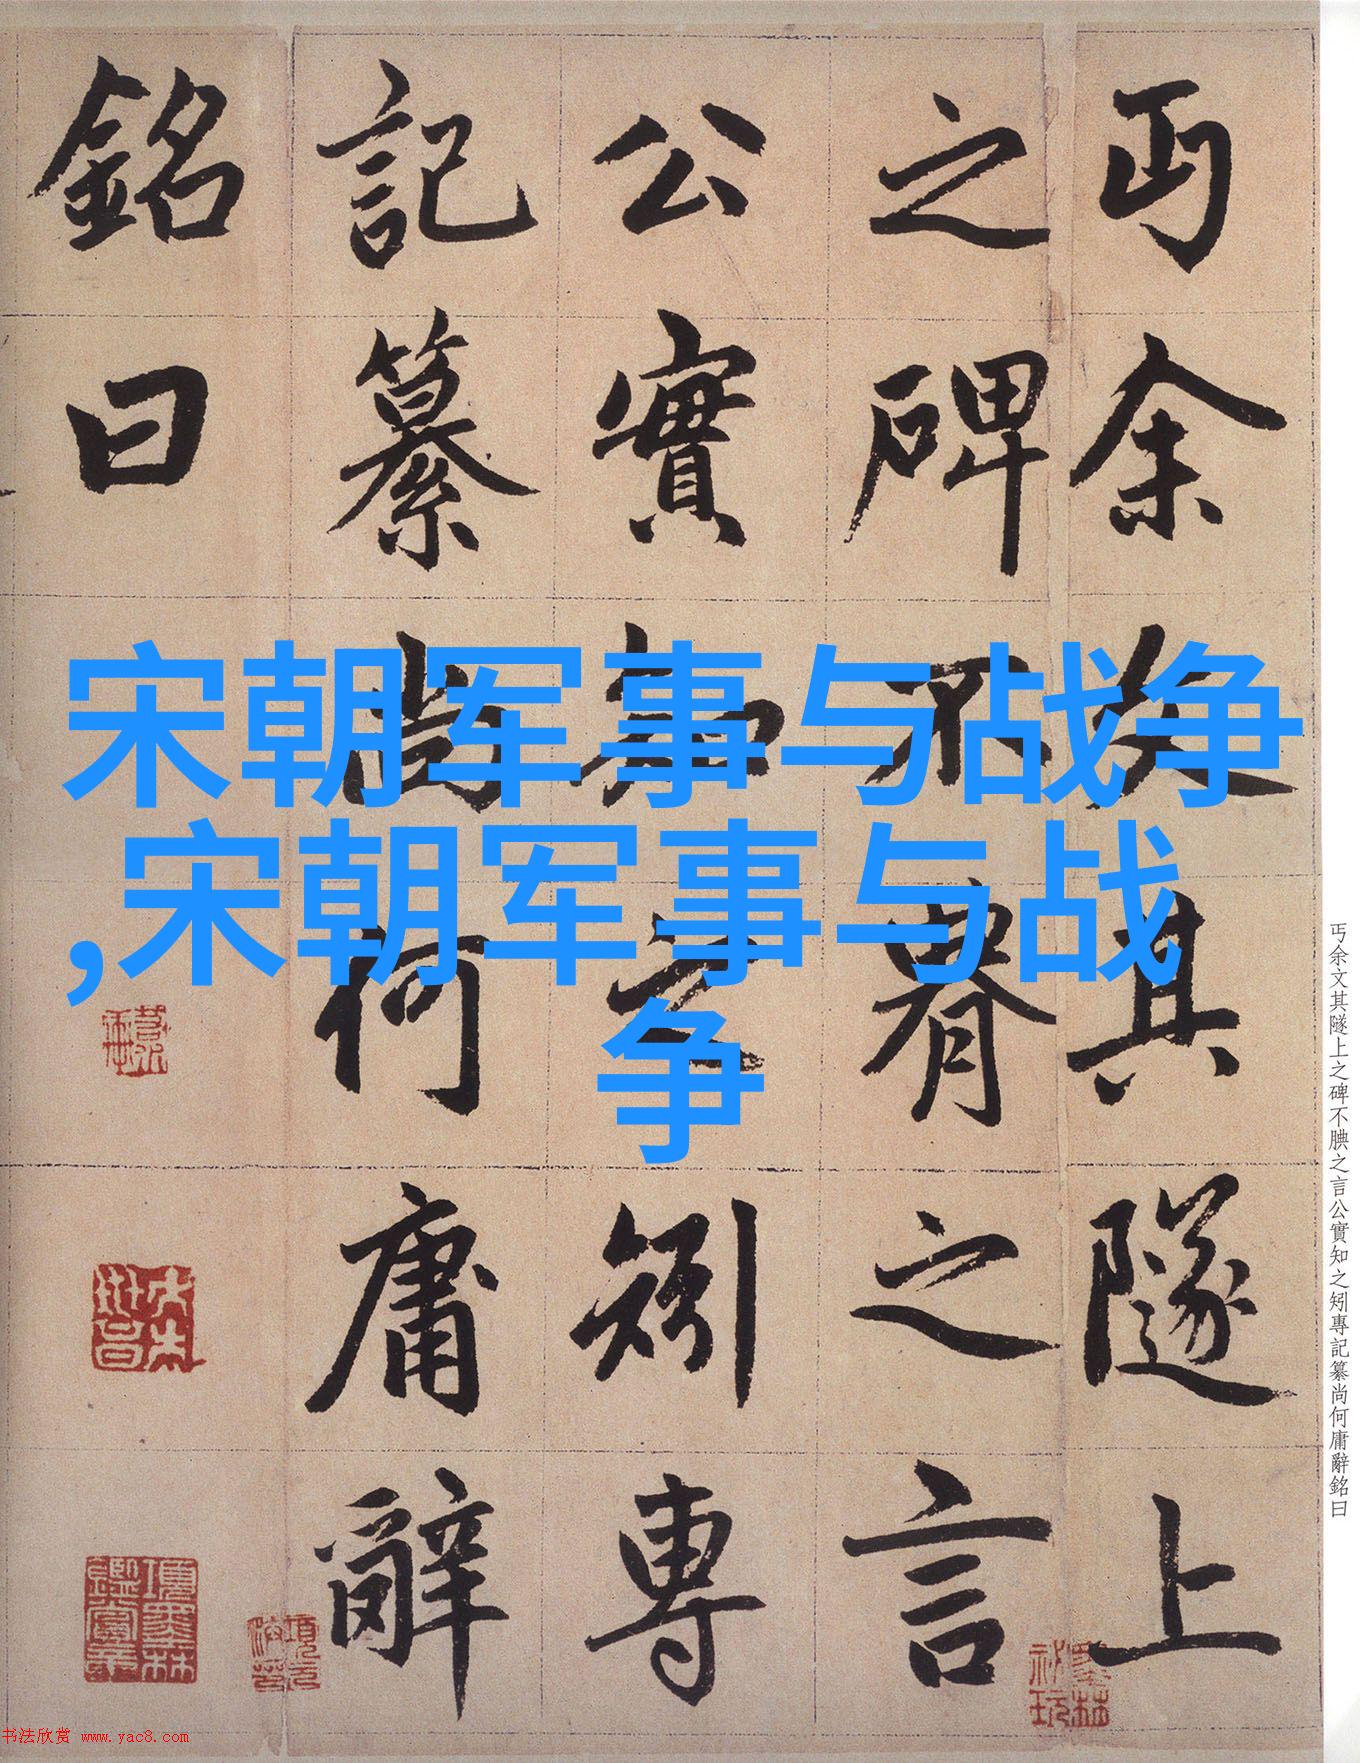 宋朝军事与战争
,宋朝军事与战
争
丐余文其隧上
之碑不腆之言
公實知之矧專
記纂尚何庸辭
銘曰
丐余文其隧上之碑不腆之言公實知之矧專記纂尚何庸辭銘曰
墨林祕玩
項墨林鑑賞章
书法欣赏 www.yac8.com